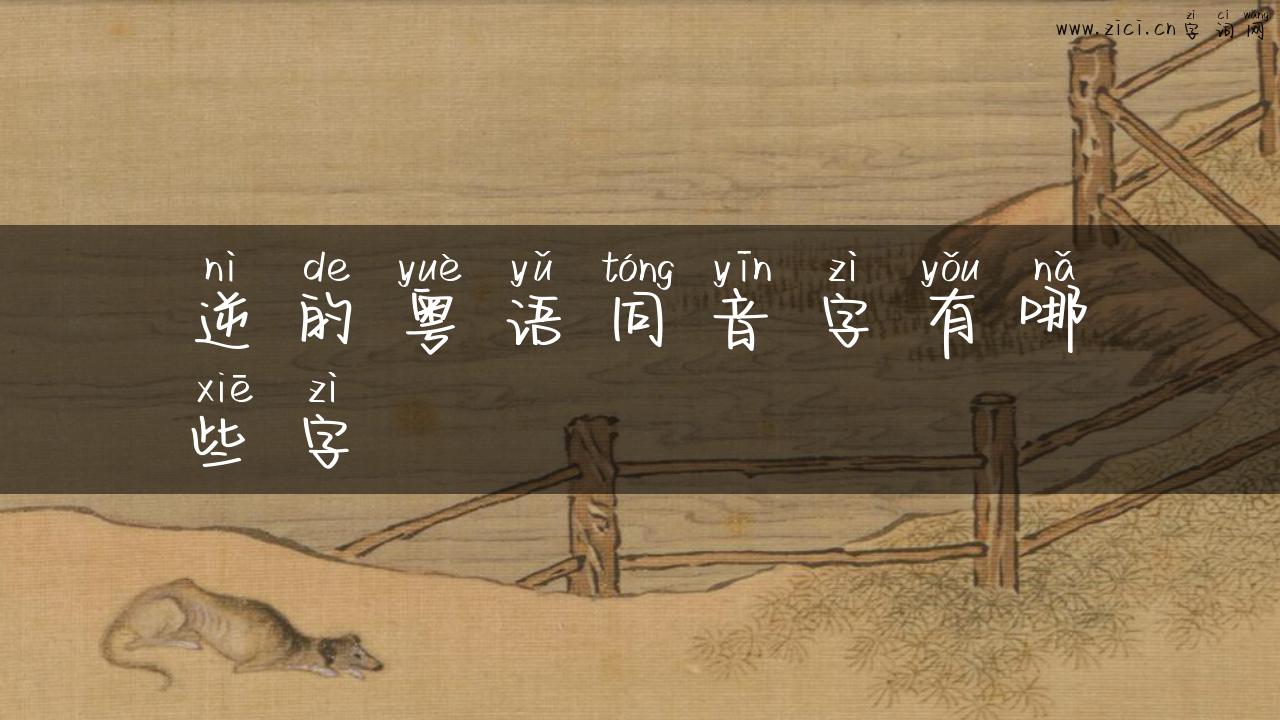 zì cí wǎng
www.zici.cn字词网
nì de yuè yǔ tóng yīn zì yǒu nǎ
逆的粤语同音字有哪
xiē zì
些字